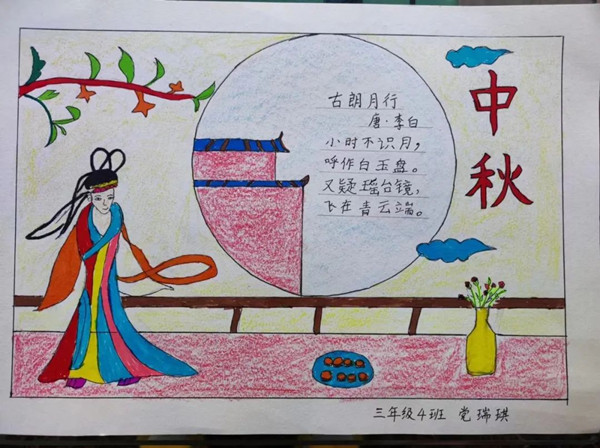 中秋
古朗月行
唐·李白
小时不识月，
呼作白玉盘。
又疑瑶台镜，
飞在青云端。
三年级4班 党瑞琪